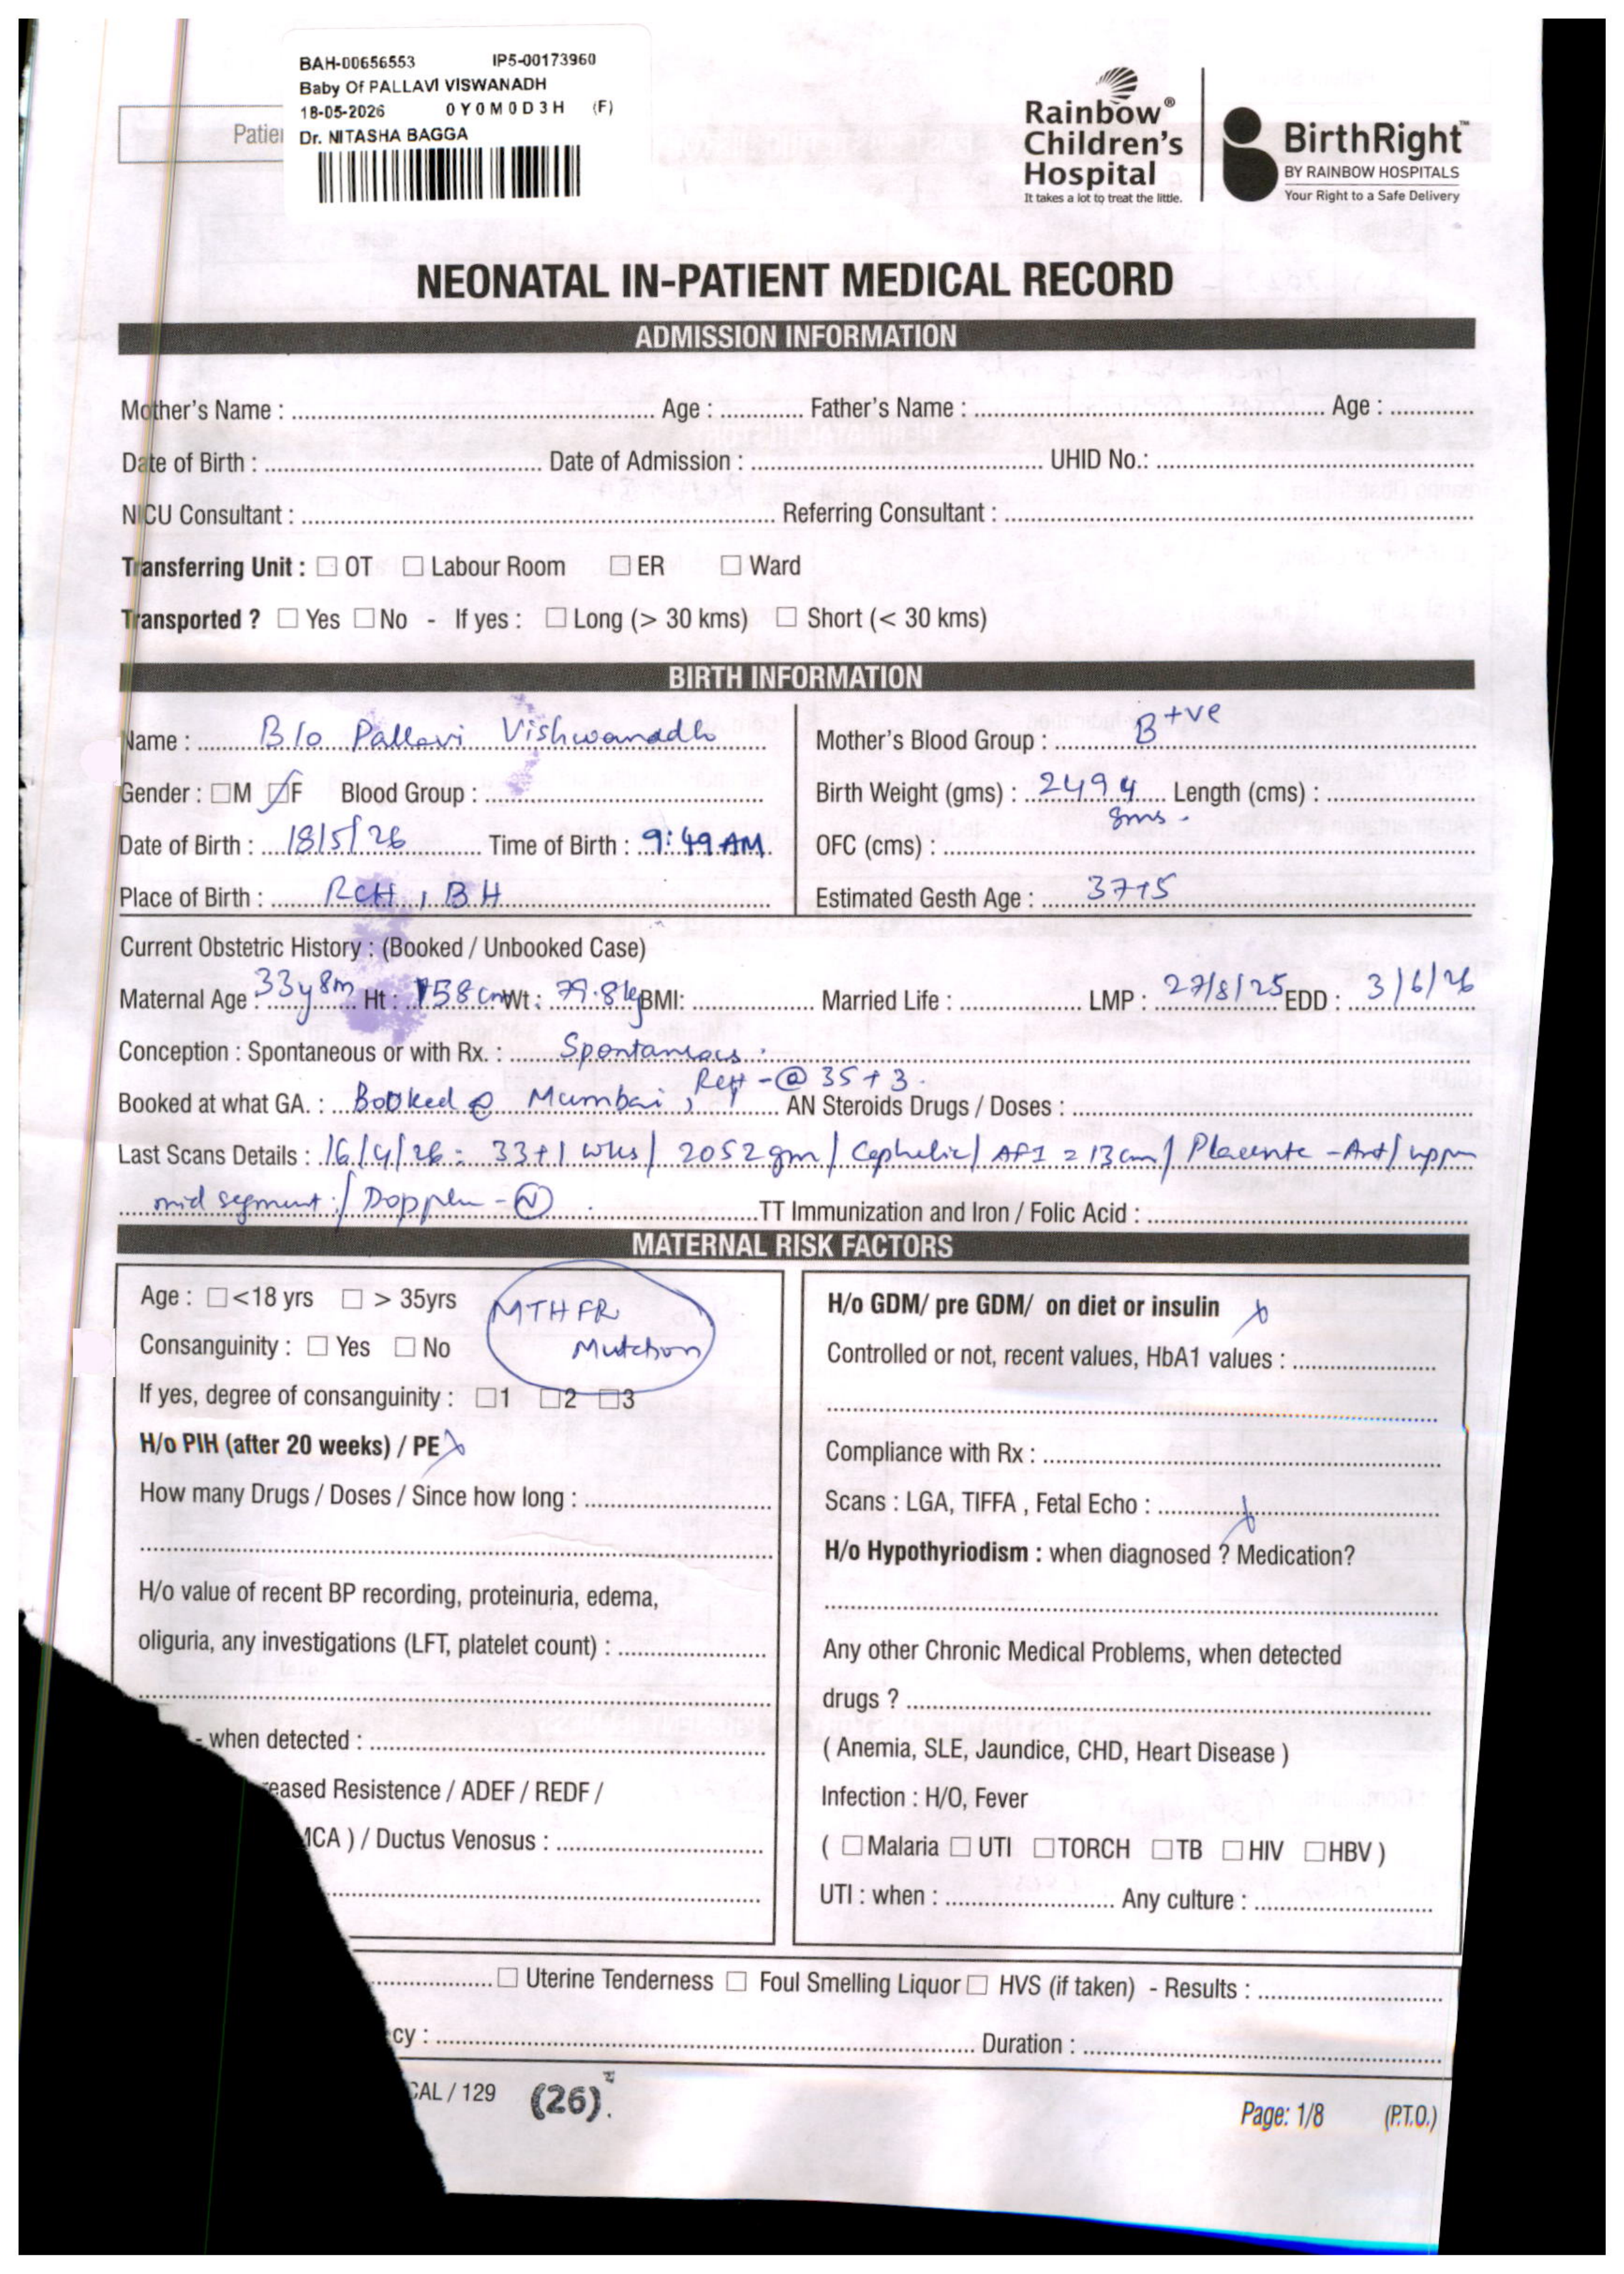 BAH-00656553 IP5-00173960
Baby Of PALLAVI VISWANADH
18-05-2026 0Y0M0D3H (F)
Patie Dr. NITASHA BAGGA
Rainbow®
Children's
Hospital
It takes a lot to treat the little.
BirthRight™
BY RAINBOW HOSPITALS
Your Right to a Safe Delivery
NEONATAL IN-PATIENT MEDICAL RECORD
ADMISSION INFORMATION
Mother's Name : Age : Father's Name : Age :
Date of Birth : Date of Admission : UHID No.:
NICU Consultant : Referring Consultant :
Transferring Unit : ☐ OT ☐ Labour Room ☐ ER ☐ Ward
Transported ? ☐ Yes ☐ No - If yes : ☐ Long (> 30 kms) ☐ Short (< 30 kms)
BIRTH INFORMATION
Name : B/o Pallavi Vishwanadh
Gender : ☐ M ☑ F Blood Group :
Date of Birth : 18/5/26 Time of Birth : 9:49 AM
Place of Birth : RCH, BH
Mother's Blood Group : B+ve
Birth Weight (gms) : 2494 gms. Length (cms) :
OFC (cms) :
Estimated Gesth Age : 37+5
Current Obstetric History : (Booked / Unbooked Case)
Maternal Age : 33y8m Ht : 158cm Wt : 79.8kg BMI: Married Life : LMP : 27/8/25 EDD : 3/6/26
Conception : Spontaneous or with Rx. : Spontaneous.
Booked at what GA. : Booked @ Mumbai, - @ 35+3. AN Steroids Drugs / Doses :
Last Scans Details : 16/4/26: 33+1 wks/ 2052gm/ Cephelic/ AFI = 13cm/ Placenta - Ant/ uppr
mid segment/ Doppler - Ⓝ TT Immunization and Iron / Folic Acid :
MATERNAL RISK FACTORS
Age : ☐ <18 yrs ☐ > 35yrs
MTHFR
Mutation
Consanguinity : ☐ Yes ☐ No
If yes, degree of consanguinity : ☐1 ☐2 ☐3
H/o PIH (after 20 weeks) / PE x
How many Drugs / Doses / Since how long :
H/o value of recent BP recording, proteinuria, edema,
oliguria, any investigations (LFT, platelet count) :
- when detected :
eased Resistence / ADEF / REDF /
MCA ) / Ductus Venosus :
H/o GDM/ pre GDM/ on diet or insulin x
Controlled or not, recent values, HbA1 values :
Compliance with Rx :
Scans : LGA, TIFFA , Fetal Echo : x
H/o Hypothyriodism : when diagnosed ? Medication?
Any other Chronic Medical Problems, when detected
drugs ?
( Anemia, SLE, Jaundice, CHD, Heart Disease )
Infection : H/O, Fever
( ☐ Malaria ☐ UTI ☐ TORCH ☐ TB ☐ HIV ☐ HBV )
UTI : when : Any culture :
☐ Uterine Tenderness ☐ Foul Smelling Liquor ☐ HVS (if taken) - Results :
cy : Duration :
CAL / 129 (26). Page: 1/8 (P.T.O.)